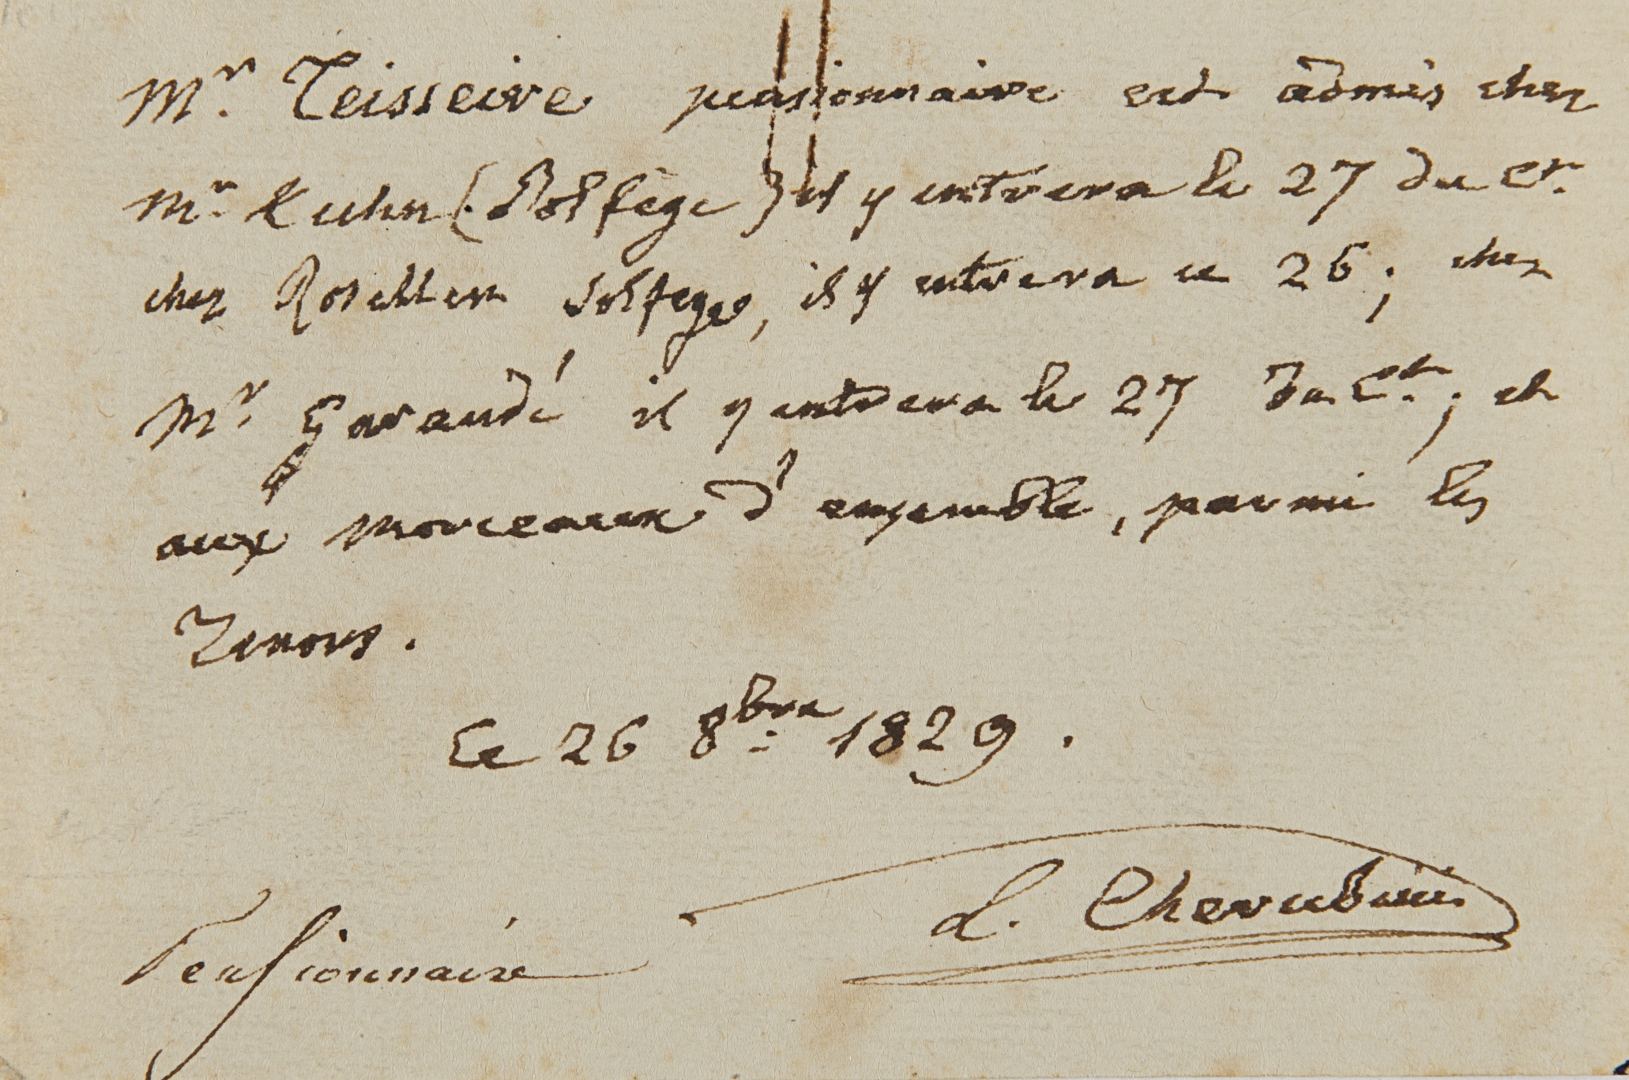 Mr. Teisseire pensionnaire est admis chez
Mr. Kuhn (Solfège) il y entrera le 27 du Ct.
chez Rosellen solfège, il y entrera ce 26; chez
Mr. Garaudé il y entrera le 27 du Ct.; et
aux morceaux d'ensemble, parmi les
Tenors.
Ce 26 8bre 1829.
L. Cherubini
Pensionnaire